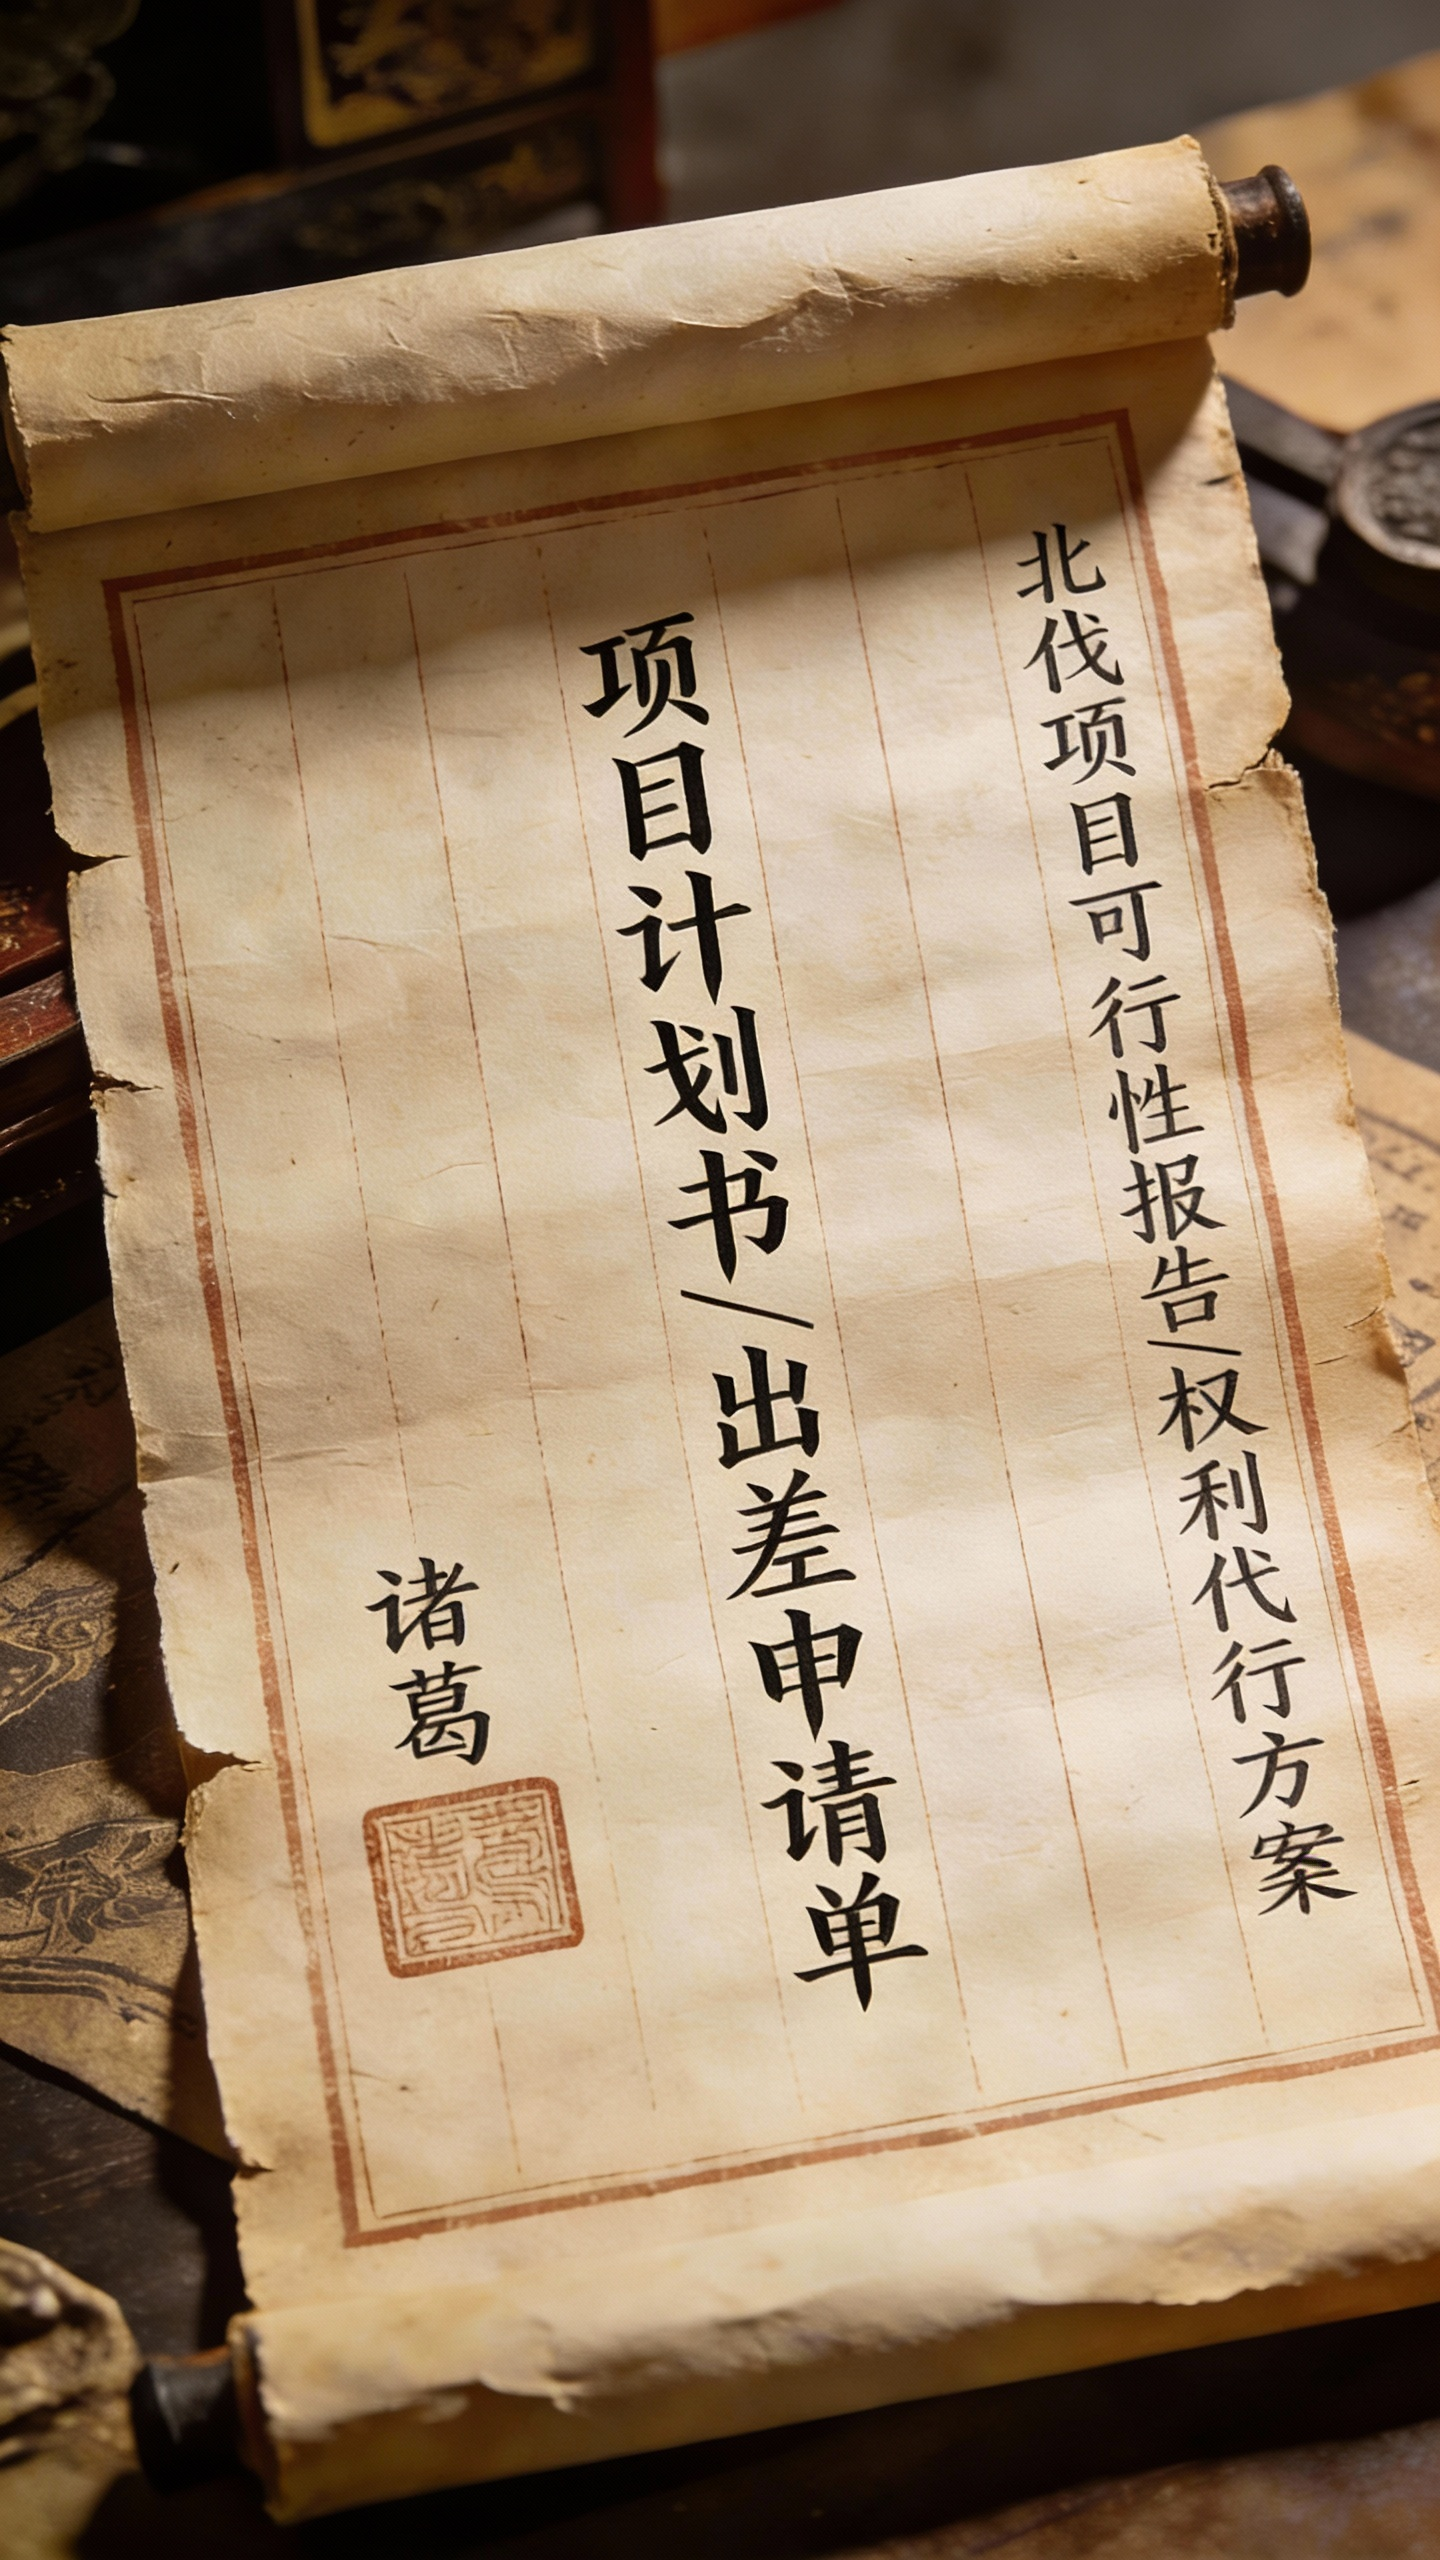 北伐项目可行性报告/权利代行方案
项目计划书/出差申请单
诸葛